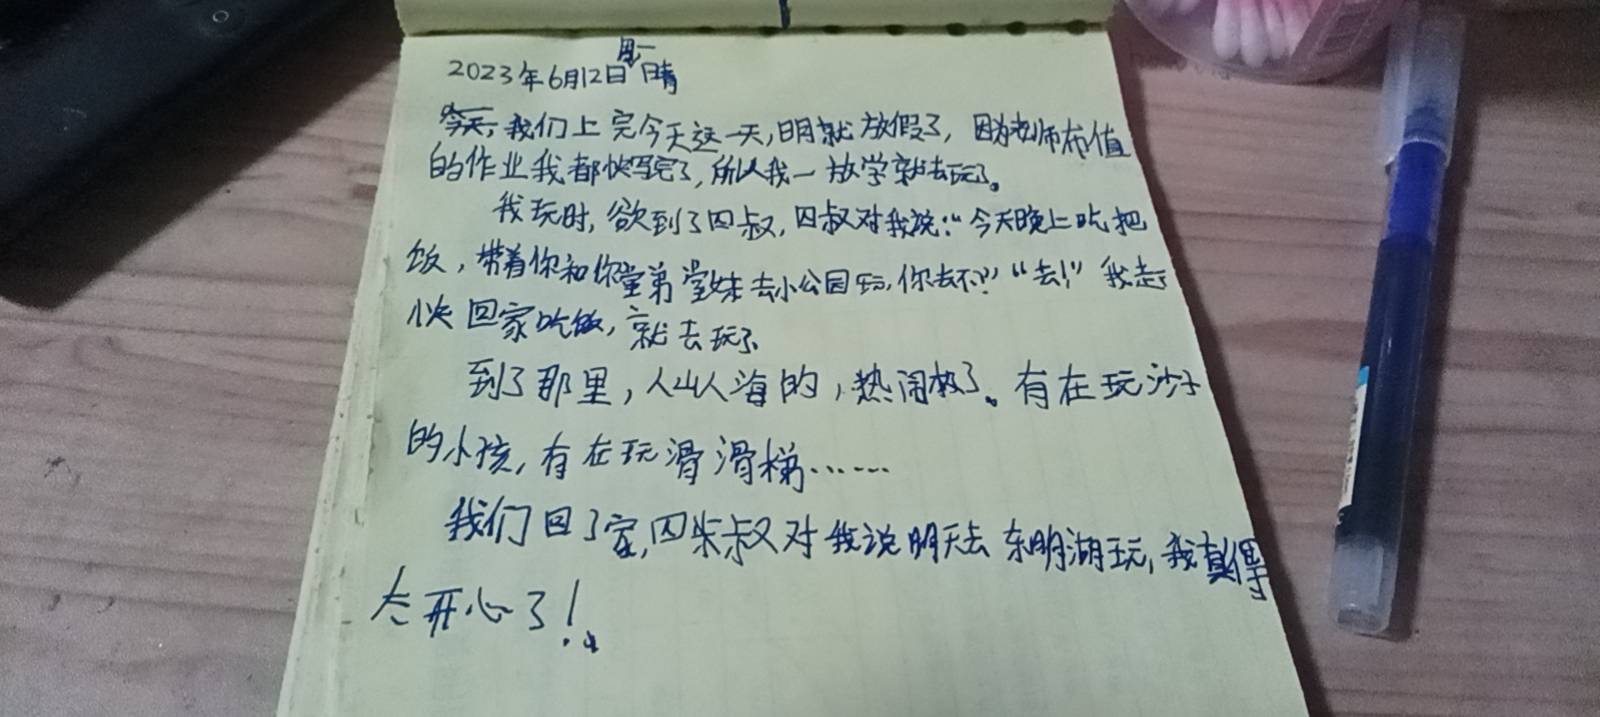 2023年6月12日周一晴
我们上完今天这一天,明就放假了,因为老师布值
的作业我都快写完了,所以我一放学就去玩了。
我玩时,欲到了四叔,四叔对我说:“今天晚上吃把
饭,带着你和你堂弟堂妹去小公园玩,你去不?”“去!”我赶
快回家吃饭,就去玩了
到了那里,人山人海的,热闹极了。有在玩沙子
的小孩,有在玩滑滑梯……
我们回了家,四叔对我说明天去东明湖玩,我真得
太开心了!